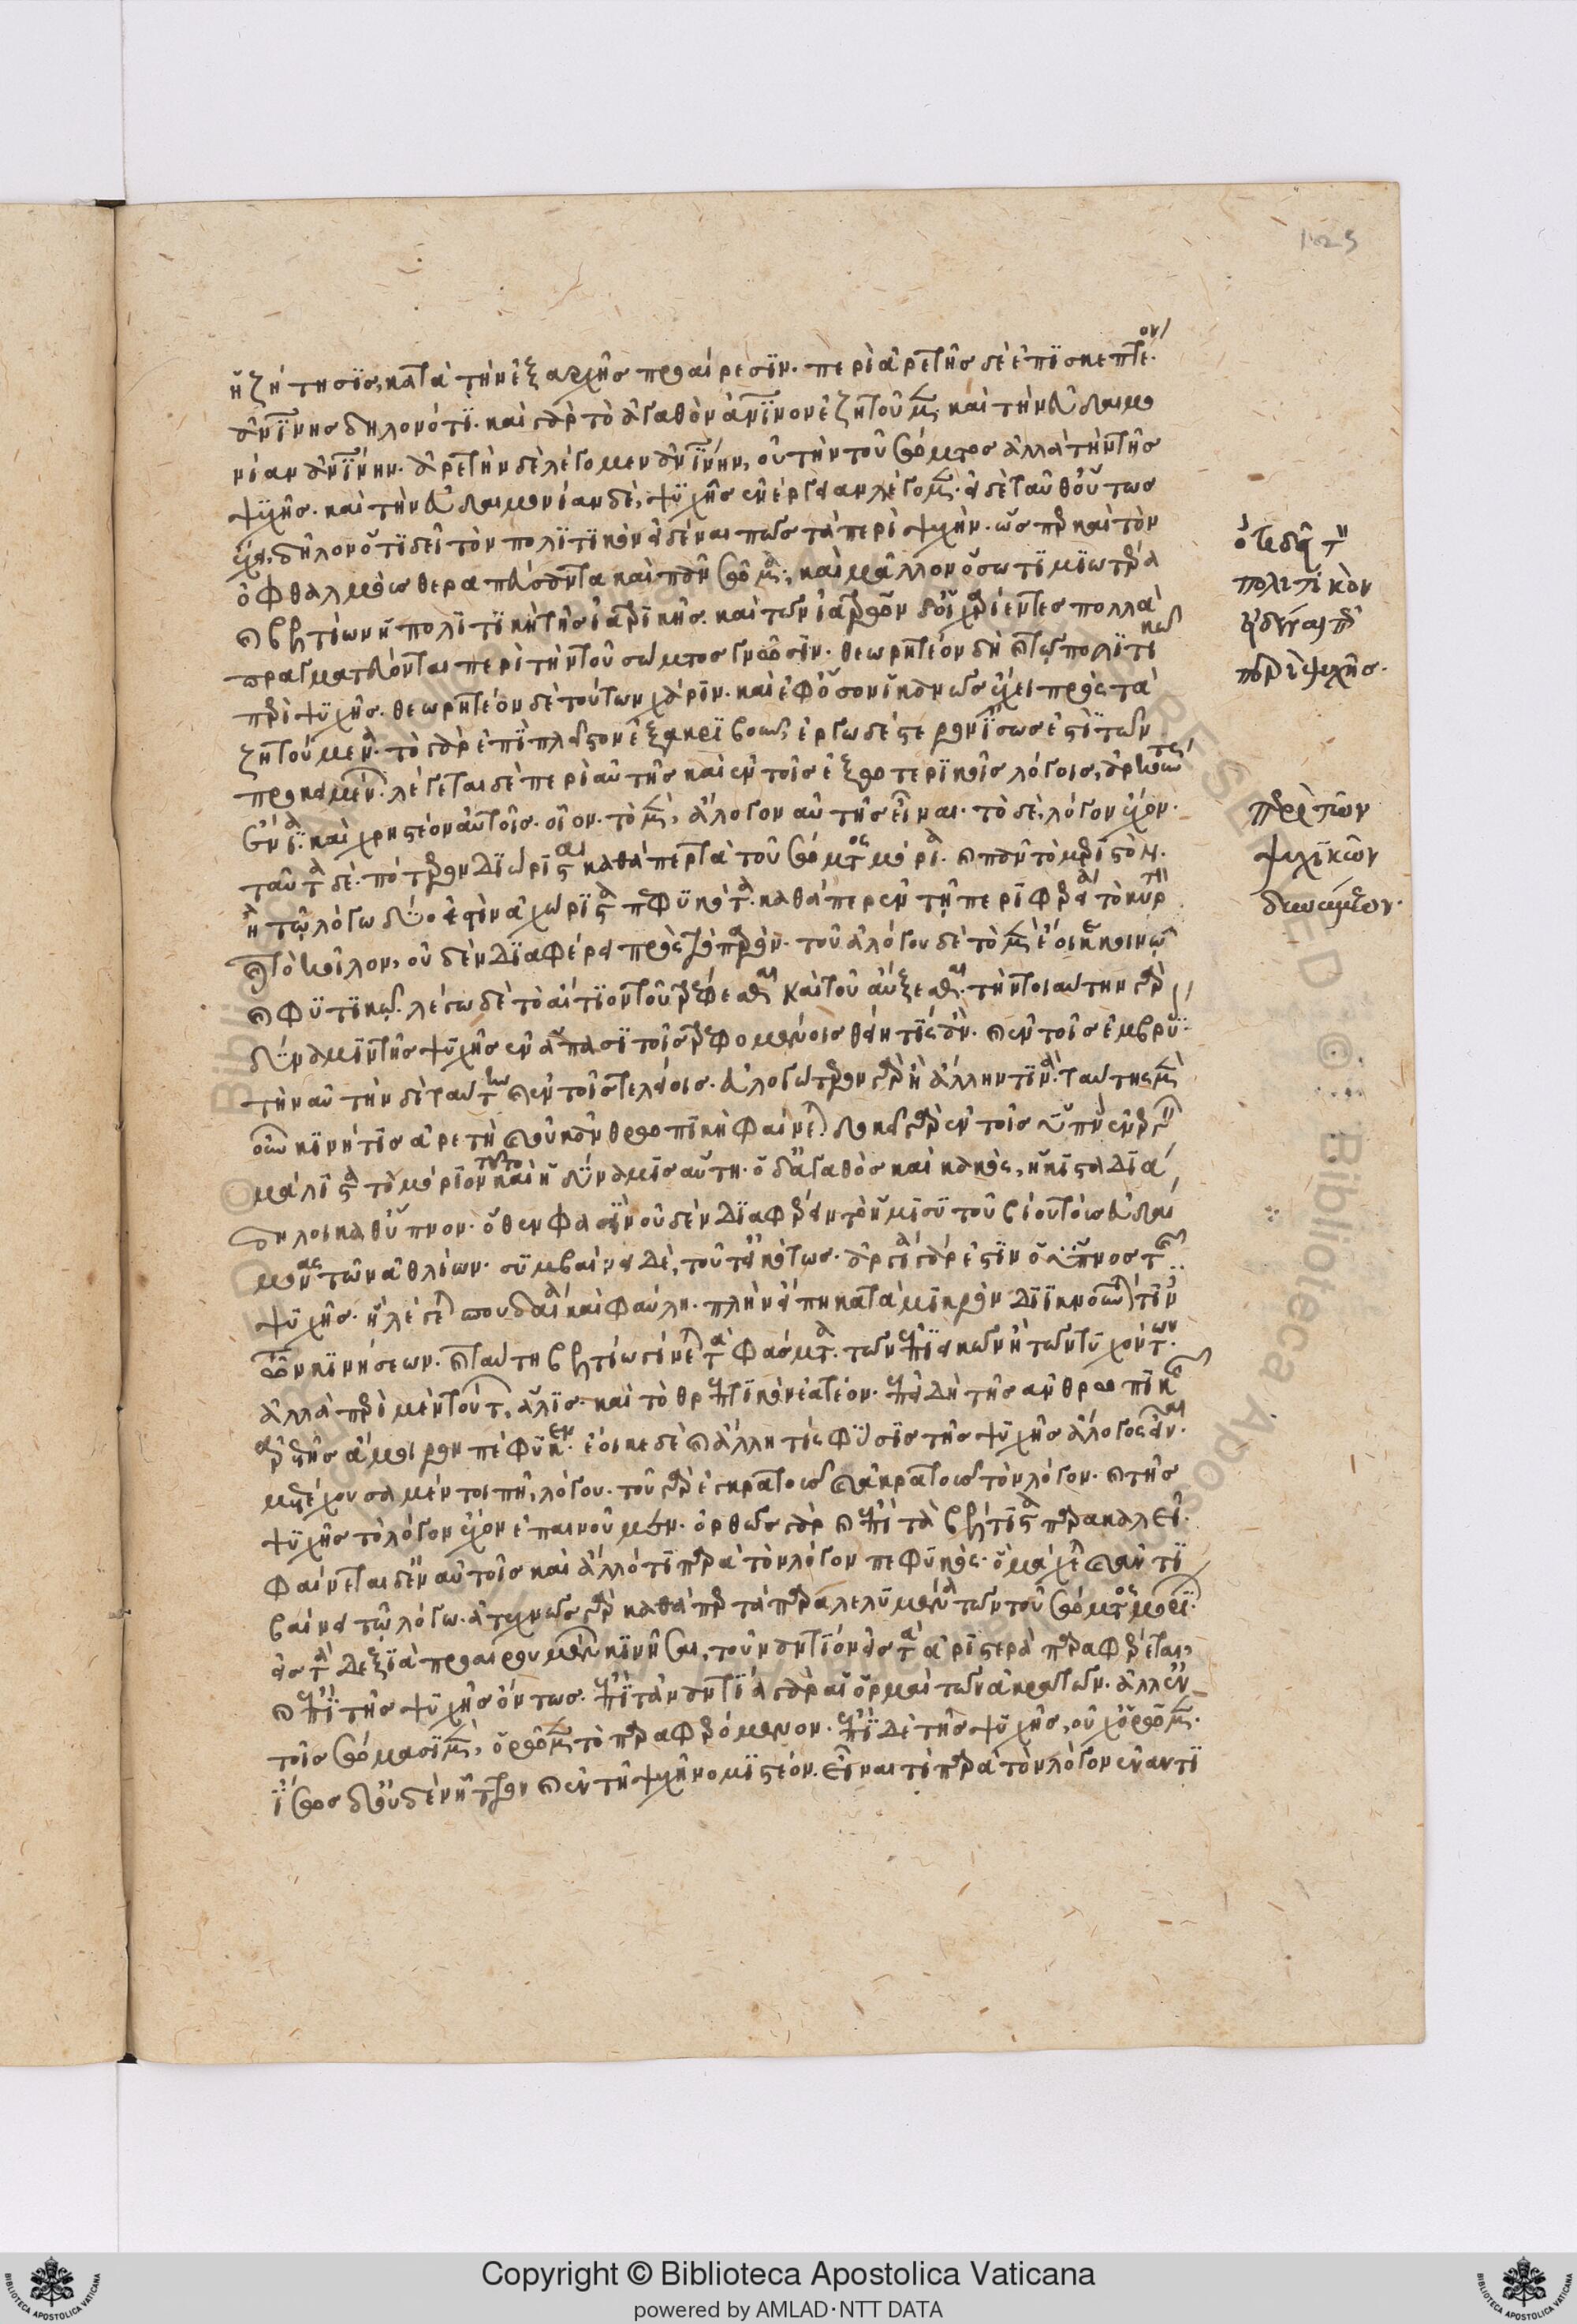 ἡ ζήτησις, κατὰ τὴν ἐξ ἀρχῆς προαίρεσιν. περὶ ἀρετῆς δὲ ἐπισκεπτέον
ἀνίνης δηλονότι. καὶ γὰρ τὸ ἀγαθὸν ἀνίνον ἐζητοῦμεν καὶ τὴν εὐδαιμο
νίαν ἀνίνην. ἀρετὴν δὲ λέγομεν ἀνίνην, οὐ τὴν τοῦ σώματος ἀλλὰ τὴν τῆς
ψυχῆς. καὶ τὴν εὐδαιμονίαν δὲ, ψυχῆς ἐνέργειαν λέγομεν. εἰ δὲ ταῦθ' οὕτως
ἔχει, δῆλον ὅτι δεῖ τὸν πολιτικὸν εἰδέναι πῶς τὰ περὶ ψυχήν. ὥσπερ καὶ τὸν
ὀφθαλμοὺς θεραπεύσοντα καὶ πᾶν σῶμα, καὶ μᾶλλον ὅσω τιμιωτέρα
καὶ βελτίων ἡ πολιτικὴ τῆς ἰατρικῆς. καὶ τῶν ἰατρῶν δ' οἱ χαρίεντες πολλὰ
πραγματεύονται περὶ τὴν τοῦ σώματος γνῶσιν. θεωρητέον δὴ καὶ τῷ πολιτικῷ
περὶ ψυχῆς. θεωρητέον δὲ τούτων χάριν. καὶ ἐφ' ὅσον ἱκανῶς ἔχει πρὸς τὰ
ζητούμενα. τὸ γὰρ ἐπὶ πλεῖστον ἐξακριβοῦν, ἐργωδέστερον ἴσως ἐστὶ τῶν
προκειμένων. λέγεται δὲ περὶ αὐτῆς καὶ ἐν τοῖς ἐξωτερικοῖς λόγοις, ἀρκούντως
ἔνια. καὶ χρηστέον αὐτοῖς. οἷον. τὸ μὲν, ἄλογον αὐτῆς εἶναι. τὸ δὲ, λόγον ἔχον.
ταῦτα δὲ. πότερον διώρισται καθάπερ τὰ τοῦ σώματος μόρια. καὶ πᾶν τὸ μεριστόν.
ἢ τῷ λόγω δύο ἐστὶν ἀχώριστα πεφυκότα. καθάπερ ἐν τῇ περιφερεία τὸ κυρτὸν
καὶ τὸ κοῖλον, οὐδὲν διαφέρει πρὸς τὸ παρόν. τοῦ ἀλόγου δὲ τὸ μὲν ἔοικε κοινῷ
καὶ φυτικῷ. λέγω δὲ τὸ αἴτιον τοῦ τρέφεσθαι καὶ τοῦ αὔξεσθαι. τὴν τοιαύτην γὰρ
δύναμιν τῆς ψυχῆς ἐν ἅπασι τοῖς τρεφομένοις θείη τὶς ἄν. καὶ ἐν τοῖς ἐμβρύοις
τὴν αὐτὴν δὲ ταύτην καὶ ἐν τοῖς τελείοις. εὐλογώτερον γὰρ ἢ ἄλλην τινά. ταύτης μὲν
οὖν κοινή τις ἀρετὴ καὶ οὐκ ἀνθρωπικὴ φαίνεται. δοκεῖ γὰρ ἐν τοῖς ὕπνοις ἐνεργεῖν
μάλιστα τὸ μόριον τοῦτο καὶ ἡ δύναμις αὕτη. ὁ δ' ἀγαθὸς καὶ κακὸς, ἥκιστα διά
δηλοι καθ' ὕπνον. ὅθεν φασὶν οὐδὲν διαφέρειν τὸ ἥμισυ τοῦ βίου τοὺς εὐδαί
μονας τῶν ἀθλίων. συμβαίνει δὲ, τοῦτ' εἰκότως. ἀργία γάρ ἐστιν ὁ ὕπνος τῆς
ψυχῆς. ἣ λέγεται σπουδαία καὶ φαύλη. πλὴν εἴ πη κατὰ μικρὸν διικνοῦνται τινὲς
τῶν κινήσεων. καὶ ταύτη βελτίω γίνεται τὰ φάσματα τῶν ἐπιεικῶν ἢ τῶν τυχόντων.
ἀλλὰ περὶ μὲν τούτων, ἅλις. καὶ τὸ θρεπτικὸν ἐατέον. ἐπειδὴ τῆς ἀνθρωπικῆς
ἀρετῆς ἄμοιρον πέφυκεν. ἔοικε δὲ καὶ ἄλλη τὶς φύσις τῆς ψυχῆς ἄλογος εἶναι.
μετέχουσα μέντοι πῆ, λόγου. τοῦ γὰρ ἐγκρατοῦς καὶ ἀκρατοῦς τὸν λόγον. καὶ τῆς
ψυχῆς τὸ λόγον ἔχον ἐπαινοῦμεν. ὀρθῶς γὰρ καὶ ἐπὶ τὰ βέλτιστα παρακαλεῖ.
φαίνεται δ' ἐν αὐτοῖς καὶ ἄλλό τι παρὰ τὸν λόγον πεφυκὸς. ὃ μάχεται καὶ ἀντι
βαίνει τῷ λόγω. ἀτεχνῶς γὰρ καθάπερ τὰ παραλελυμένα τῶν τοῦ σώματος μορίων.
εἰς τὰ δεξιὰ προαιρουμένων κινῆσαι, τοὐναντίον εἰς τὰ ἀριστερὰ παραφέρεται,
καὶ ἐπὶ τῆς ψυχῆς οὕτως. ἐπὶ τἀναντία γὰρ αἱ ὁρμαὶ τῶν ἀκρατῶν. ἀλλ' ἐν
τοῖς σώμασι μὲν, ὁρῶμεν τὸ παραφερόμενον. ἐπὶ δὲ τῆς ψυχῆς, οὐχ ὁρῶμεν.
ἴσως δ' οὐδὲν ἧττον καὶ ἐν τῇ ψυχῇ νομιστέον. εἶναι τί παρὰ τὸν λόγον ἐναντι
ὅτι δεῖ τὸν
πολιτικὸν
εἰδέναι τὰ
περὶ ψυχῆς.
περὶ τῶν
ψυχικῶν
δυνάμεων.
Copyright © Biblioteca Apostolica Vaticana
powered by AMLAD·NTT DATA